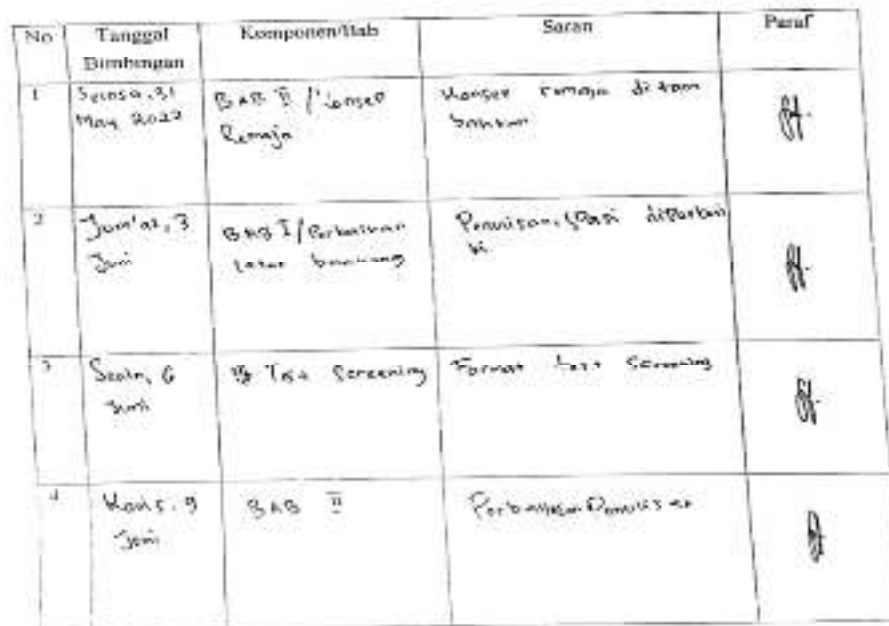 No Tanggal Bimbingan Komponen/Bab Saran Paraf
1 Selasa, 31 May 2022
BAB II / Konsep Remaja
Konsep remaja di tam bahkan
2 Jum'at, 3 Juni
BAB I / Perbaikan latar belakang
Penulisan, diperbai ki
3 Senin, 6 Juni
Test Screening
Format test screening
4 Kamis, 9 Juni
BAB II
Perbaikan Penulisan